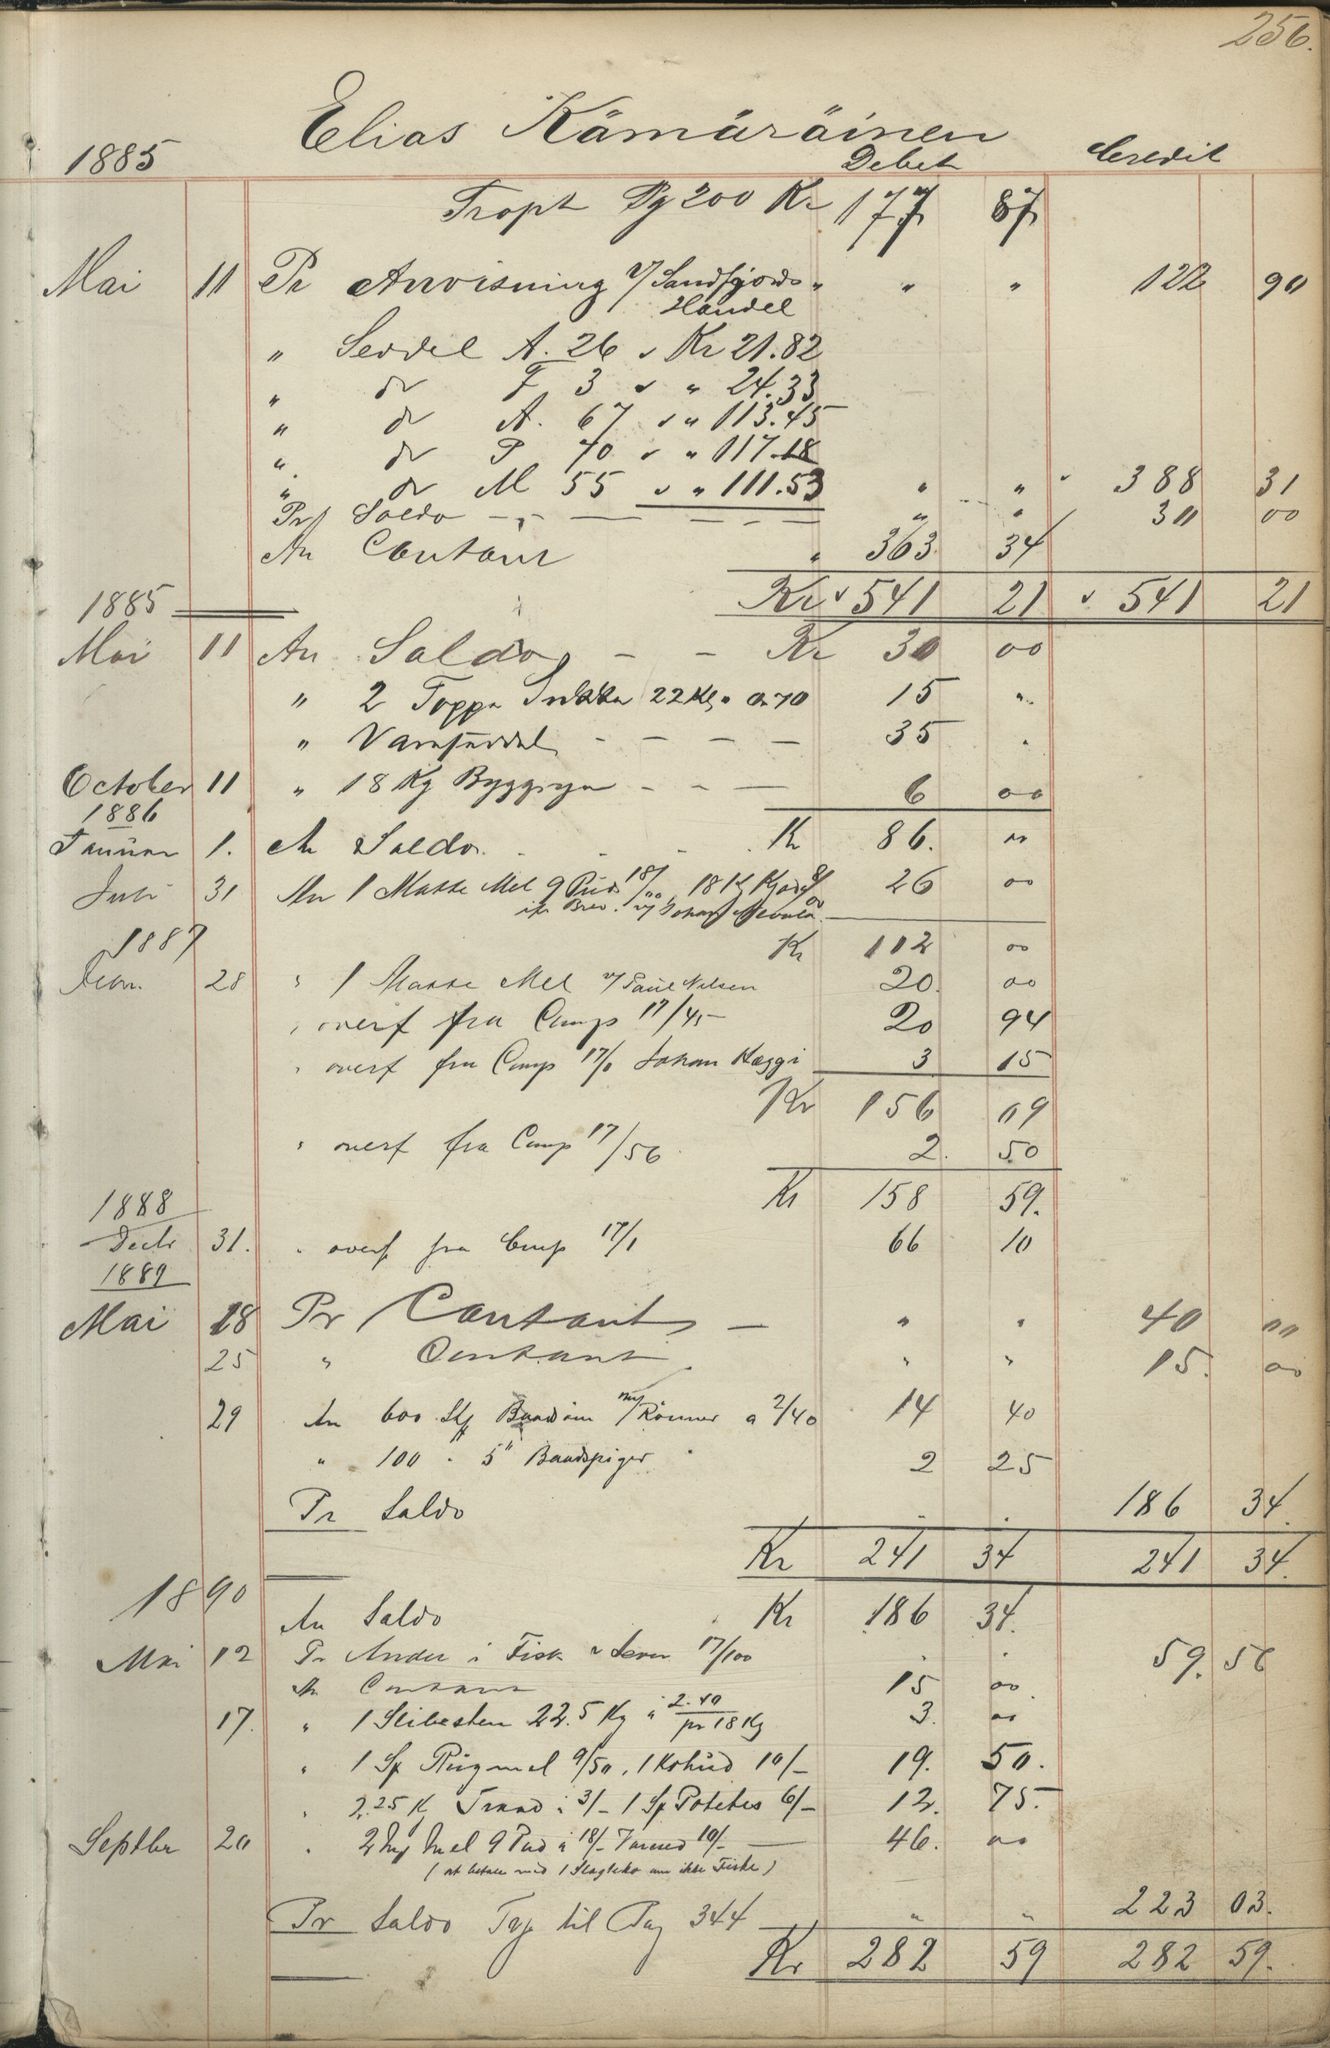 256.
Elias Kämäräinen
1885 Debet Credit
Tropt Pg 200 Kr 177 87
Mai 11 Pr Anvisning v/ Sandfjords " " " 122 90
Handel
" Seddel A. 26 v Kr 21.82
" do F 3 v " 24.33
" do A. 67 v " 113.45
" do P 70 v " 117.18
" do M 55 v " 111.53 " " v 388 31
Pr Saldo - - - - - " " 30 00
An Contant " 363. 34
Kr v 541 21 v 541 21
1885
Mai 11 An Saldo - - Kr 30 00
" 2 Toppe Sukker 22 Kg " 0.70 15 "
" Vareseddel - - - - 35 "
October 11 " 18 Kg Byggryn - - - 6 00
1886
Januar 1. An Saldo. Kr 86. 00
Juli 31 An 1 Matte Mel 9 Pud 18/00, 18 Kg 26 00
Brev. v/ Johan
1887 Kr 112 00
28 " 1 Matte Mel v/ Paul Nilsen 20. 00
" overf fra Comp 17/45 20 94
" overf fra Comp 17/0 Johan Haggi 3 15
Kr 156 09
" overf fra Comp 17/56 2. 50
Kr 158 59.
1888
Decbr 31. " overf fra Comp 17/1 66 10
1889
Mai 18 Pr Contant - " " 40 00
25 " Contant " " 15. 00
29 An 600 Rönner a 2/40 14 40
" 100 " 5" Baadspiger 2 25
Pr Saldo . . 186 34.
Kr 241 34 241 34.
1890
An Saldo Kr 186 34.
Mai 12 Pr Andel i Fisk & Lever 17/100 . . 59. 56
An Contant 15 00
17. " 1 Slibesten 22.5 Kg a 2.40 pr 18 Kg 3. 00
" 1 Sk Rugmel 9/50, 1 Kohud 10/- 19. 50.
" 2.25 Kg Traad a 3/- 1 Sk Potetes 6/- 12. 75.
Septbr 20 " 2 Mt Mel 9 Pud a 18/- 10/- 46. 00
(at betale med 1 Slagteko om ikke Fiske)
Pr Saldo Trp til Pag 344 " " 223 03.
Kr 282 59 282 59.